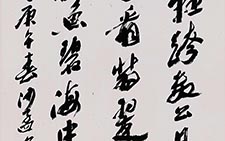 跨數公凡
看翡翠
魚碧海中
庚午春沙孟